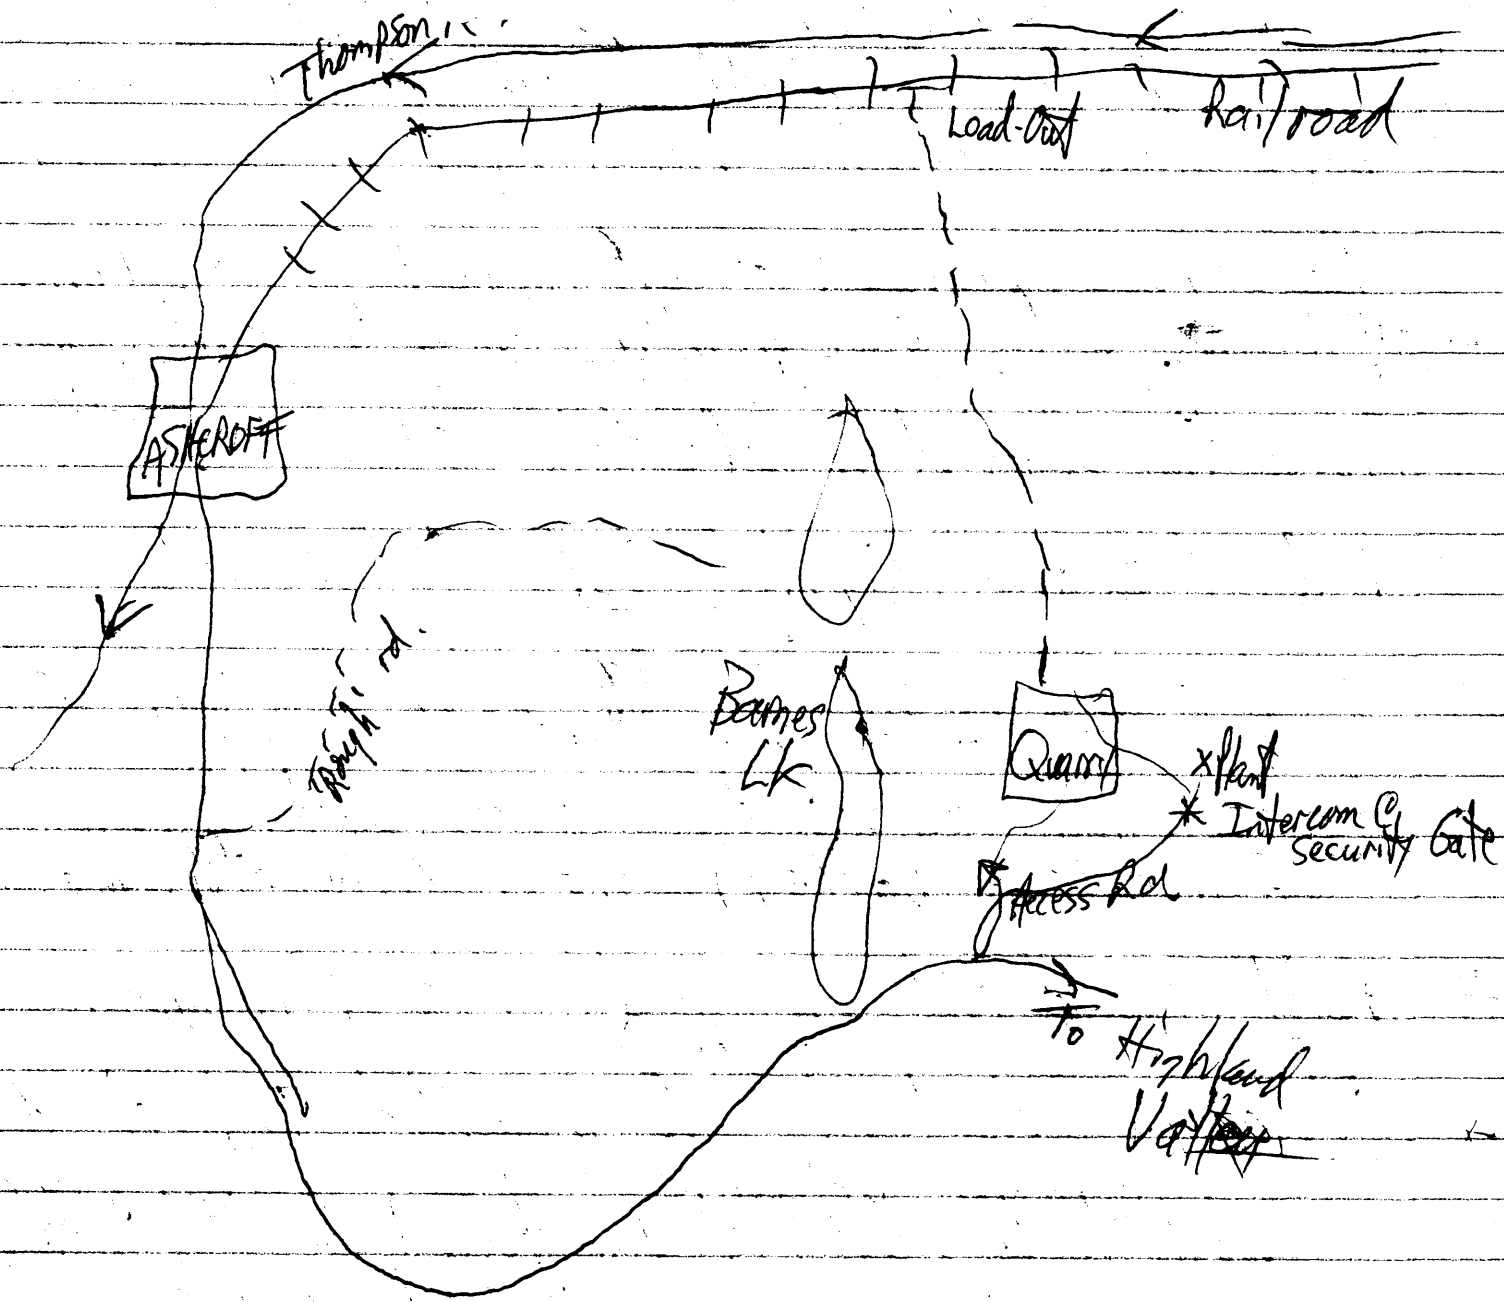 Thompson R.
Load-Out
Railroad
ASHCROFT
Rough rd.
Barnes
LK.
Quarry
x Plant
Intercom @
Security Gate
Access Rd
To
Highland
Valley